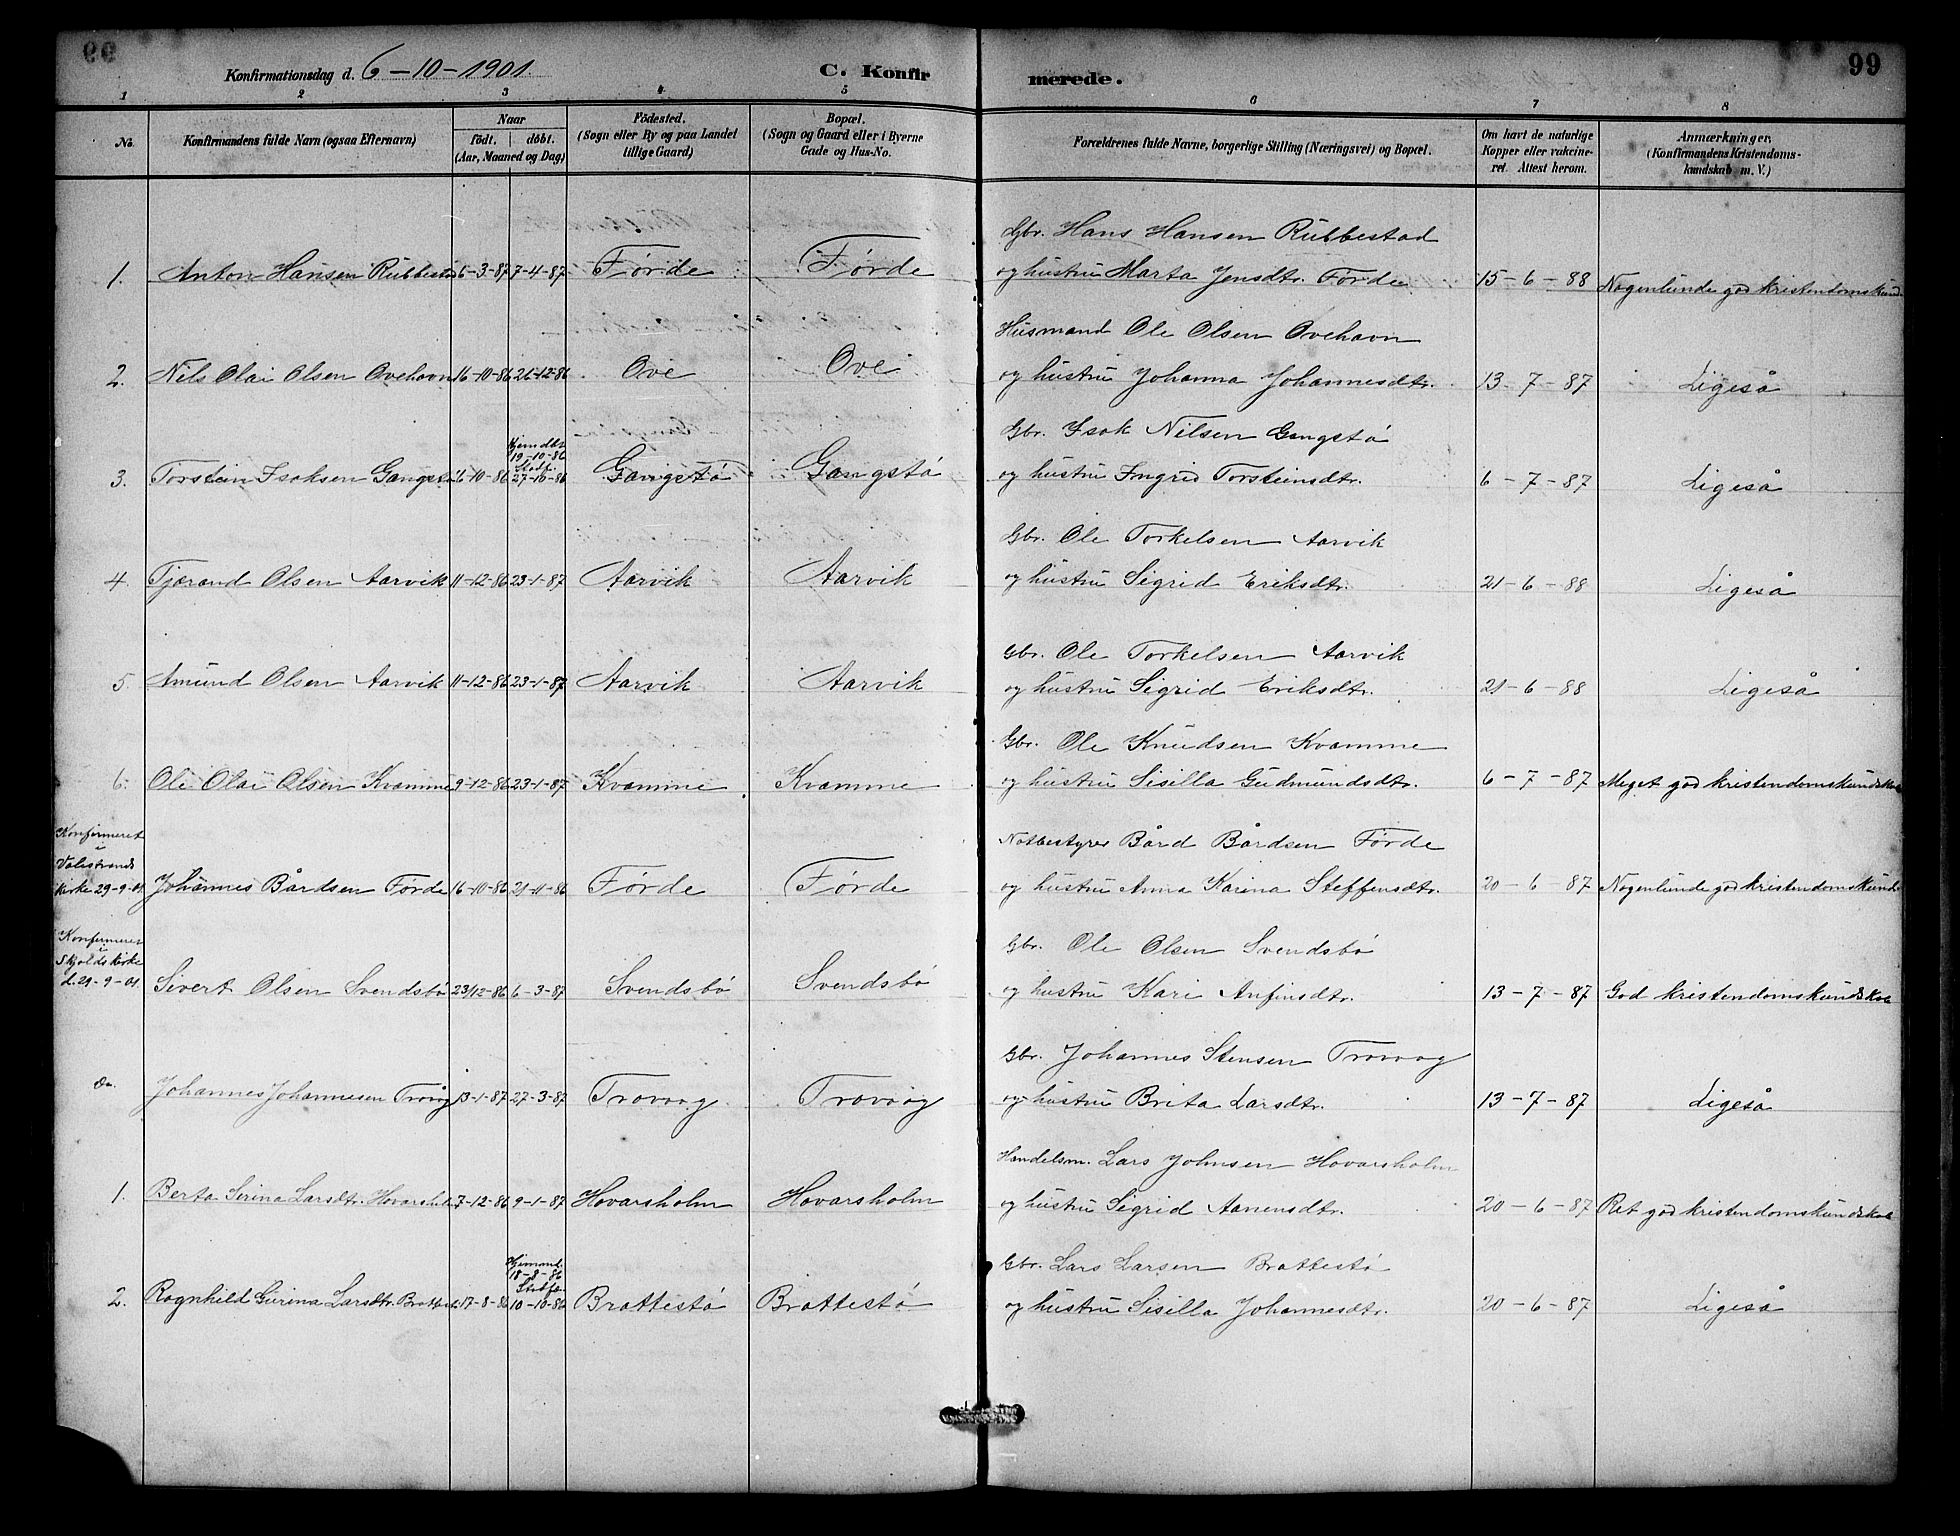 99
Konfirmationsdag d. 6-10-1901. C. Konfirmerede. 99
1 2 3 4 5 6 7 8
No. Konfirmandens fulde Navn (ogsaa Efternavn) Naar födt. döbt. (Aar, Maaned og Dag) Födested. (Sogn eller By og paa Landet tillige Gaard) Bopæl. (Sogn og Gaard eller i Byerne Gade og Hus-No. Forældrenes fulde Navne, borgerlige Stilling (Næringsvei) og Bopæl. Om havt de naturlige Kopper eller vakcineret. Attest herom. Anmærkninger, (Konfirmandens Kristendomskundskab m. V.)
Gbr. Hans Hansen Rubbestad
1. Anton Hansen Rubbestad 6-3-87 7-4-87 Förde Förde og hustru Marta Jensdtr. Förde 15-6-88 Nogenlunde god kristendomskund.
Husmand Ole Olsen Ovehavn
2. Nils Olai Olsen Ovehavn 16-10-86 26-12-86 Ove Ove og hustru Johanna Johannesdtr. 13-7-87 Ligeså
Gbr. Isak Nilsen Gangstø
3. Torstein Isaksen Gangstø 6-10-86 Hjemdbt. 19-10-86 Stadf. 27-10-86 Gangstø Gangstø og hustru Ingrid Torsteinsdtr. 6-7-87 Ligeså
Gbr. Ole Torkelsen Aarvik
4. Tjærand Olsen Aarvik 11-12-86 23-1-87 Aarvik Aarvik og hustru Sigrid Eriksdtr. 21-6-88 Ligeså
Gbr. Ole Torkelsen Aarvik
5. Amund Olsen Aarvik 11-12-86 23-1-87 Aarvik Aarvik og hustru Sigrid Eriksdtr. 21-6-88 Ligeså
Gbr. Ole Knudsen Kvamme
6. Ole Olai Olsen Kvamme 9-12-86 23-1-87 Kvamme Kvamme og hustru Sisilla Gudmundsdtr. 6-7-87 Meget god kristendomskundskab
Konfirmeret i Valestrands kirke 29-9-01.
Notbestyrer Bård Bårdsen Förde
Johannes Bårdsen Förde 16-10-86 21-11-86 Förde Förde og hustru Anna Karina Steffensdtr. 20-6-87 Nogenlunde god kristendomskund
Konfirmeret i Skjolds kirke d. 29-9-01.
Gbr. Ole Olsen Svendsbø
Sivert Olsen Svendsbø 23/12-86 6-3-87 Svendsbø Svendsbø og hustru Kari Anfinsdtr. 13-7-87 God kristendomskundskab
Gbr. Johannes Stensen Trovaag
Do. Johannes Johannesen Tråvåg 13-1-87 27-3-87 Trovaag Trovaag og hustru Brita Larsdtr. 13-7-87 Ligeså
Handelsm. Lars Johnsen Hovarsholm
1. Berta Serina Larsdtr. Hovarsholm 7-12-86 9-1-87 Hovarsholm Hovarsholm og hustru Sigrid Aanensdtr. 20-6-87 Ret god kristendomskundskab
Gbr. Lars Larsen Brattestø
2. Ragnhild Gurina Larsdtr. Brattest. 17-8-86 18-8-86 10-10-86 Brattestø Brattestø og hustru Sisilla Johannesdtr. 20-6-87 Ligeså